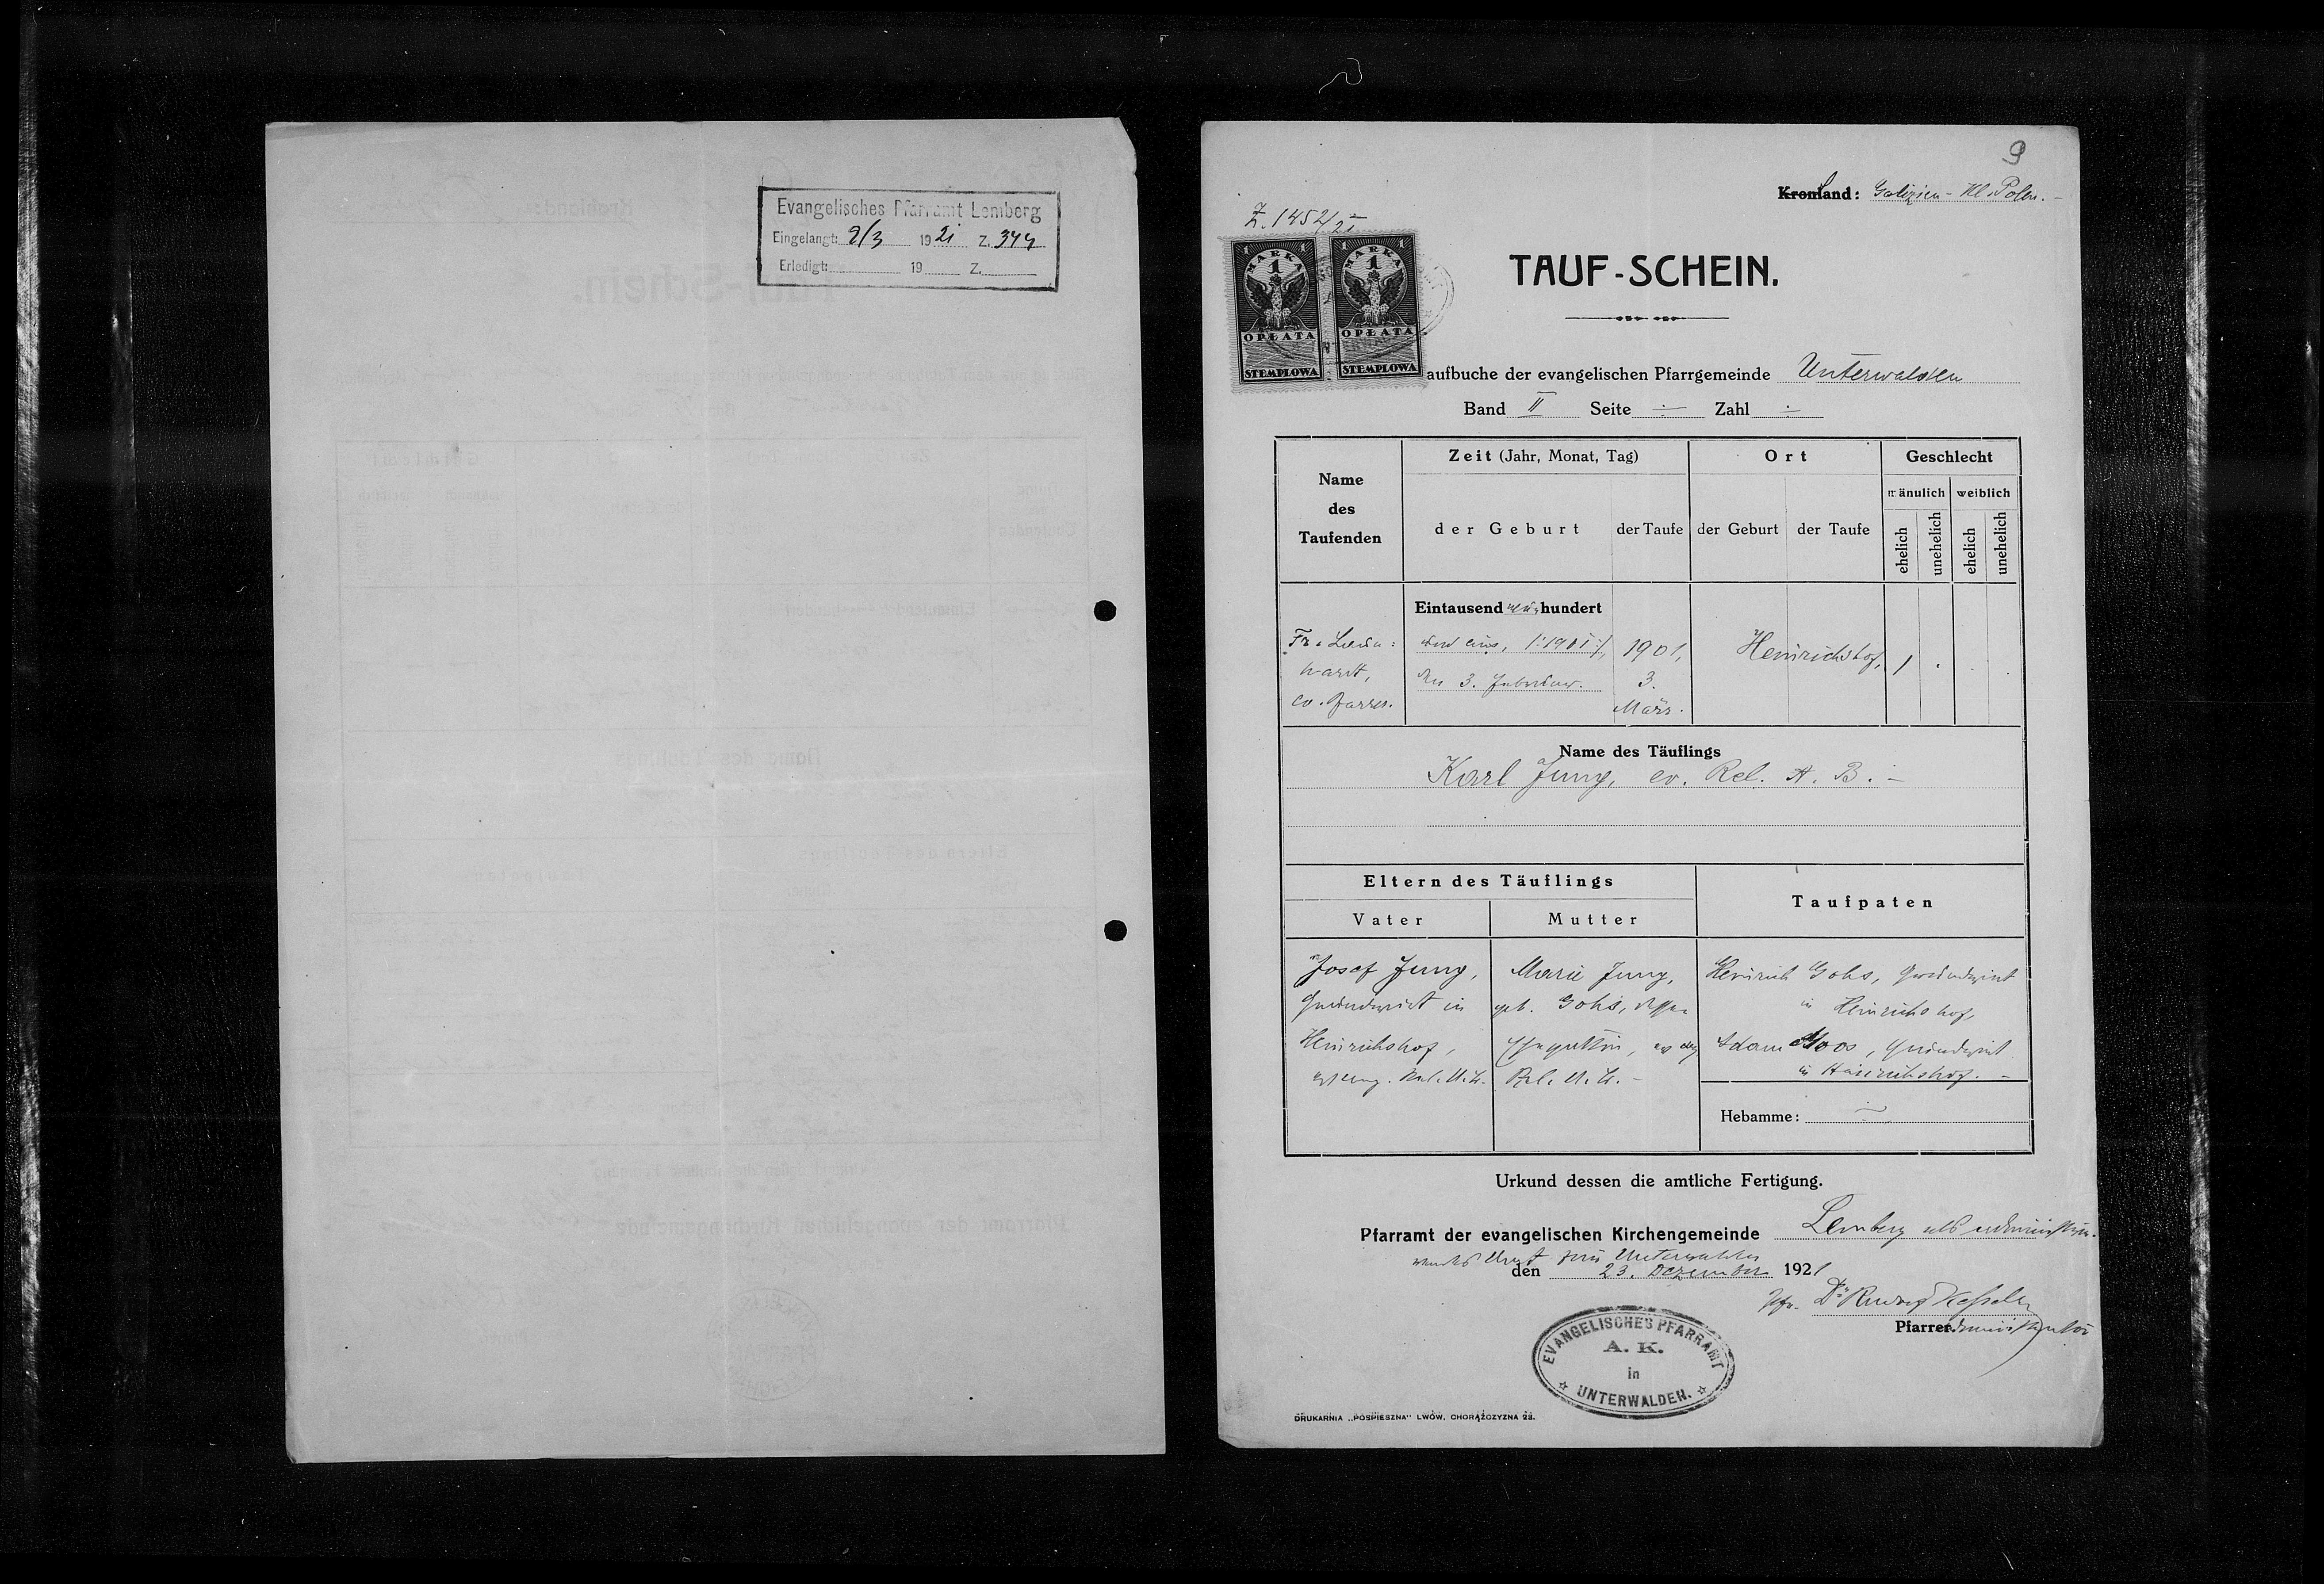 Evangelisches Pfarramt Lemberg
Eingelangt: 9/3 1921 Z. 344
Erledigt: 19 Z.
9
Kronland: Galizien - Kl. Polen. -
Z. 1452/21
1 MARKA 1
1
OPŁATA
STEMPLOWA
1 MARKA 1
1
OPŁATA
STEMPLOWA
TAUF-SCHEIN.
aufbuche der evangelischen Pfarrgemeinde Unterwalden
Band II Seite ÷ Zahl ÷
Name des Taufenden
Zeit (Jahr, Monat, Tag)
Ort
Geschlecht
der Geburt
der Taufe
der Geburt
der Taufe
männlich
weiblich
ehelich
unehelich
ehelich
unehelich
Eintausend neunhundert
und eins, /:1901:/,
den 3. Februar.
1901,
3.
März.
Heinrichshof,
1
ev. Pfarrer.
Name des Täuflings
Karl Jung, ev. Rel. A. B. -
Eltern des Täuflings
Taufpaten
Vater
Mutter
Josef Jung,
Grundwirt in
Heinrichshof,
evang. Rel. A. B.
Marie Jung,
geb. Gohs, dessen
Ehegattin, evg
Rel. A. B. -
Heinrich Gohs, Grundwirt
in Heinrichshof,
Adam Moos, Grundwirt
in Heinrichshof. -
Hebamme: ÷
Urkund dessen die amtliche Fertigung.
Pfarramt der evangelischen Kirchengemeinde Lemberg als administrie-
rendes Amt von Unterwalden
den 23. Dezember 1921
Dr Rudolf Kesselring
Pfarradministrator
EVANGELISCHES PFARRAMT
A. K.
in
UNTERWALDEN.
DRUKARNIA „POSPIESZNA" LWÓW, CHORĄŻCZYZNA 28.